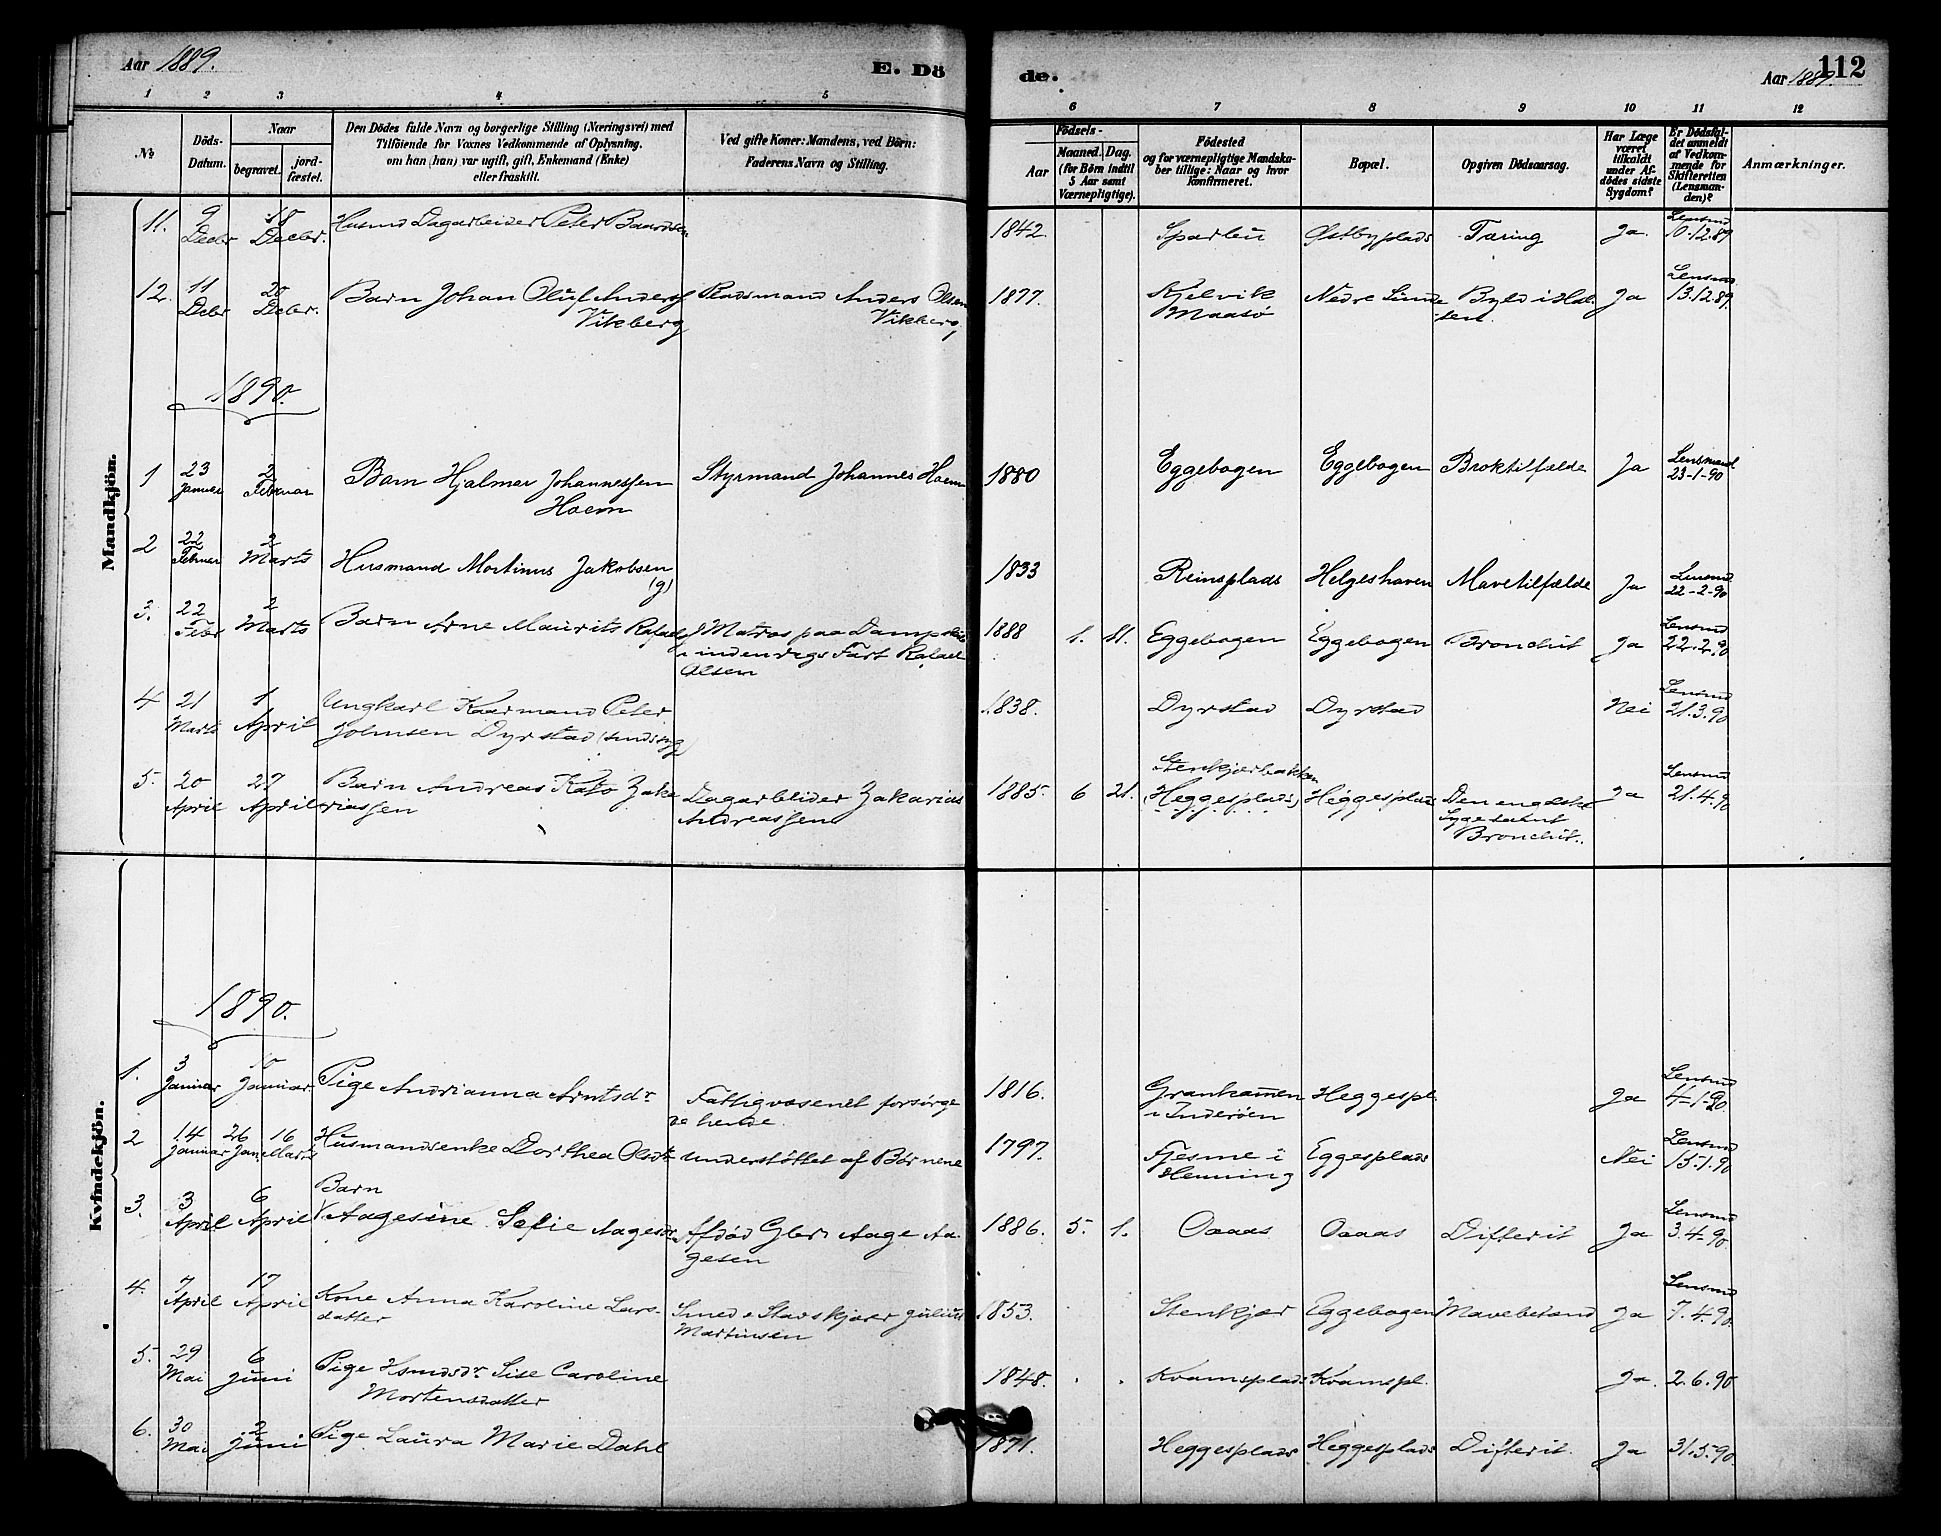 Aar 1889.
E. Dö
de.
112
Aar 1889.
1 2 3 4 5 6 7 8 9 10 11 12
№
Döds-Datum.
Naar
begravet.
jord-fæstet.
Den Dödes fulde Navn og borgerlige Stilling (Næringsvei) med
Tilföiende for Voxnes Vedkommende af Oplysning.
om han (hun) var ugift, gift, Enkemand (Enke)
eller fraskilt.
Ved gifte Koner: Mandens, ved Börn:
Faderens Navn og Stilling.
Födsels-
Aar
Maaned. Dag.
(for Börn indtil
5 Aar samt
Værnepligtige).
Födested
og for værnepligtige Mandska-
ber tillige: Naar og hvor
konfirmeret.
Bopæl.
Opgiven Dödsaarsag.
Har Læge
været
tilkaldt
under Af-
dödes sidste
Sygdom?
Er Dödsfal-
det anmeldt
af Vedkom-
mende for
Skifteretten
(Lensman-
den)?
Anmærkninger.
Mandkjön.
11. 9 Decbr 18 Decbr. Husmd Dagarbeider Peter Baardsen 1842. Sparbu Østbyplads Tæring Ja. Lensmd 10.12.89
12. 11 Decbr 20 Decbr. Barn Johan Oluf Anders Pladsmand Anders Olsen 1877. Kjelvik Nedre Sunde Byld i Hal- Ja Lensmd 13.12.89.
Vikberg Vikberg Maasö sen.
1890.
1 23 Januar 2 Februar Barn Hjalmar Johannessen Styrmand Johannes Hoem 1880 Eggebogen Eggebogen Broktilfælde Ja Lensmand 23-1-90
Hoem
2 22 Februar 2 Marts Husmand Mortinus Jakobsen 1833 Reinsplads Helgeshaven Mavetilfælde Ja Lensmd 22-2-90
(g)
3. 22 Febr 2 Marts Barn Arne Maurits Rafaels Matros paa Dampskib 1888 1. 11. Eggebogen Eggebogen Bronchit Ja Lensmd 22.2.90
i indenrigs Fart Rafael
Olsen
4 21 Marts 1 April Ungkarl Kaarmand Peter 1838. Dyrstad Dyrstad Nei Lensmd 21.3.90
Johnsen Dyrstad
5. 20 April 27 April Barn Andreas Kato Zaka Dagarbeider Zakarias 1885. 6 21. Stenkjærbakken Heggesplads Den engelske Ja Lensmd 21.4.90
riassen Andreassen (Heggesplads) Sygesamt
Bronchit.
Kvindekjön.
1890.
1. 3 Januar 10 Januar Pige Andrianna Arntsdr Fattigvæsenet forsørge 1816. Grankammen Heggespl. Ja Lensmd 4-1-90.
de hende. i Inderøen
2 14 Januar 26 Jan. 16 Marts Husmandsenke Dorthea Olsdtr understøttet af Børnene 1797. Fjesme i Eggesplads Nei Lensmd 15.1.90
Henning
3. 3 April 6 April Barn
Aagesine Sofie Aagesdr. Afdød Gbr Aage Aa- 1886. 5. 1. Oaaas Oaaas Difterit Ja Lensmd 3.4.90.
gesen
4. 7 April 17 April Kone Anna Karoline Lars- Smed Stavskjærer Julius 1853. Stenkjær Eggebogen Mavebetænd Ja Lensmd 7.4.90.
datter Martinsen
5. 29 Mai 6 Juni Pige Hsmdsdr Sise Caroline 1848. Kvamsplads Kvamspl. Ja. 2.6.90
Mortensdatter
6. 30 Mai 2 Juni Pige Laura Marie Dahl 1871. Heggesplads Heggesplads Difterit. Ja 31.5.90.